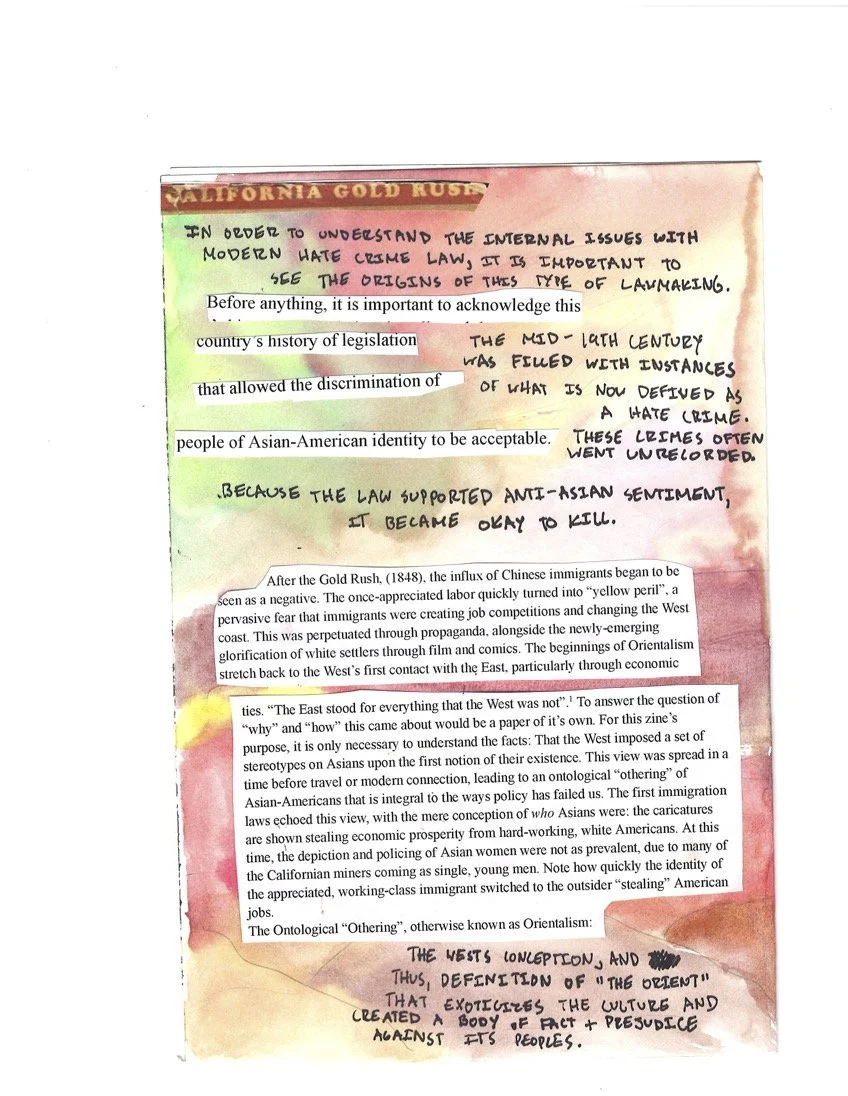 CALIFORNIA GOLD RUSH
IN ORDER TO UNDERSTAND THE INTERNAL ISSUES WITH
MODERN HATE CRIME LAW, IT IS IMPORTANT TO
SEE THE ORIGINS OF THIS TYPE OF LAWMAKING.
Before anything, it is important to acknowledge this
country's history of legislation
that allowed the discrimination of
people of Asian-American identity to be acceptable.
THE MID-19TH CENTURY
WAS FILLED WITH INSTANCES
OF WHAT IS NOW DEFINED AS
A HATE CRIME.
THESE CRIMES OFTEN
WENT UNRECORDED.
BECAUSE THE LAW SUPPORTED ANTI-ASIAN SENTIMENT,
IT BECAME OKAY TO KILL.
After the Gold Rush, (1848), the influx of Chinese immigrants began to be
seen as a negative. The once-appreciated labor quickly turned into “yellow peril”, a
pervasive fear that immigrants were creating job competitions and changing the West
coast. This was perpetuated through propaganda, alongside the newly-emerging
glorification of white settlers through film and comics. The beginnings of Orientalism
stretch back to the West's first contact with the East, particularly through economic
ties. “The East stood for everything that the West was not”.¹ To answer the question of
“why” and “how” this came about would be a paper of it's own. For this zine's
purpose, it is only necessary to understand the facts: That the West imposed a set of
stereotypes on Asians upon the first notion of their existence. This view was spread in a
time before travel or modern connection, leading to an ontological “othering” of
Asian-Americans that is integral to the ways policy has failed us. The first immigration
laws echoed this view, with the mere conception of who Asians were: the caricatures
are shown stealing economic prosperity from hard-working, white Americans. At this
time, the depiction and policing of Asian women were not as prevalent, due to many of
the Californian miners coming as single, young men. Note how quickly the identity of
the appreciated, working-class immigrant switched to the outsider “stealing” American
jobs.
The Ontological “Othering”, otherwise known as Orientalism:
THE WESTS CONCEPTION, AND
THUS, DEFINITION OF "THE ORIENT"
THAT EXOTICIZES THE CULTURE AND
CREATED A BODY OF FACT + PREJUDICE
AGAINST ITS PEOPLES.